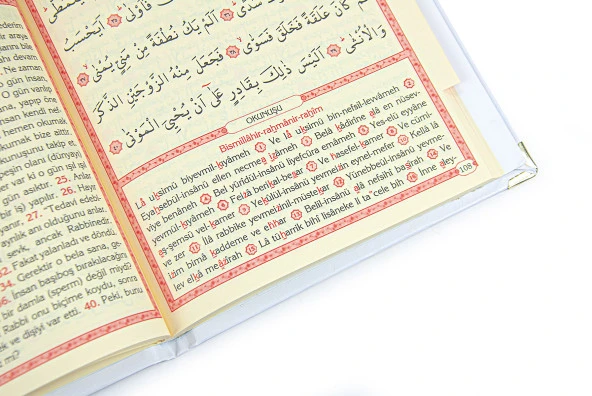 فَأَوْلَى ﴿٣٥﴾ أَيَحْسَبُ
أَلَمْ يَكُ نُطْفَةً مِنْ مَنِيٍّ يُمْنَى ﴿٣٧﴾
ثُمَّ كَانَ عَلَقَةً فَخَلَقَ فَسَوَّى ﴿٣٨﴾ فَجَعَلَ مِنْهُ الزَّوْجَيْنِ الذَّكَرَ
وَالْأُنْثَى ﴿٣٩﴾ أَلَيْسَ ذَلِكَ بِقَادِرٍ عَلَى أَنْ يُحْيِيَ الْمَوْتَى ﴿٤٠﴾
OKUNUŞU
Bismillâhir-rahmânir-rahîm
Lâ uksimü biyevmil-kıyâmeh 1 Ve lâ uksimü bin-nefsil-levvâmeh 2
Eyahsebül-insânü ellen necmea ızâmeh 3 Belâ kâdirîne alâ en nüsev-
viye benâneh 4 Bel yürîdül-insânü liyefcüra emâmeh 5 Yes-elü eyyâne
yevmül-kıyâmeh 6 Feizâ berikal-besar 7 Ve hasefel-kamer 8 Ve cümi-
aş-şemsü vel-kamer 9 Yekûlül-insânü yevmeizin eynel-mefer 10 Kellâ lâ
vezer 11 İlâ rabbike yevmeizinil-müstekar 12 Yünebbeül-insânü yevme-
izin bimâ kaddeme ve ehhar 13 Belil-insânü alâ nefsihî basîrah 14 Ve
lev elkâ meâzîrah 15 Lâ tüharrik bihî lisâneke li ta'cele bih 16 İnne aley-
108
Ne zaman
o gün insan
hemen okumak
okumak bize aittir.
okunuşunu takip et.
peşin olanı (dünyayı)
var ki o gün ışıl ışıl
gün asıktır. 25.
bir iş) yapılır. 26. Hayır
27. "Tedavi edebi-
ayrılık anı olduğunu anlar.
sevk, ancak Rabbinedir.
32. Fakat yalanladı ve döndü,
34. Gerektir o bela sana, ge-
36. İnsan başıboş bırakılacağını
bir damla (sperm) değil miydi?
Rabbi onu biçime koydu, sonra
ek ve dişiyi var etti. 40. Peki, bunu
mi?